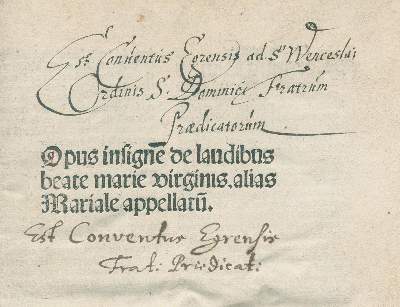 Est Conventus Egrensis ad St Wenceslai
Ordinis S. Dominici Fratrum
Prædicatorum
Opus insignẽ de laudibus
beate marie virginis. alias
Mariale appellatũ.
Est Conventus Egrensis
Frat: Prædicat: